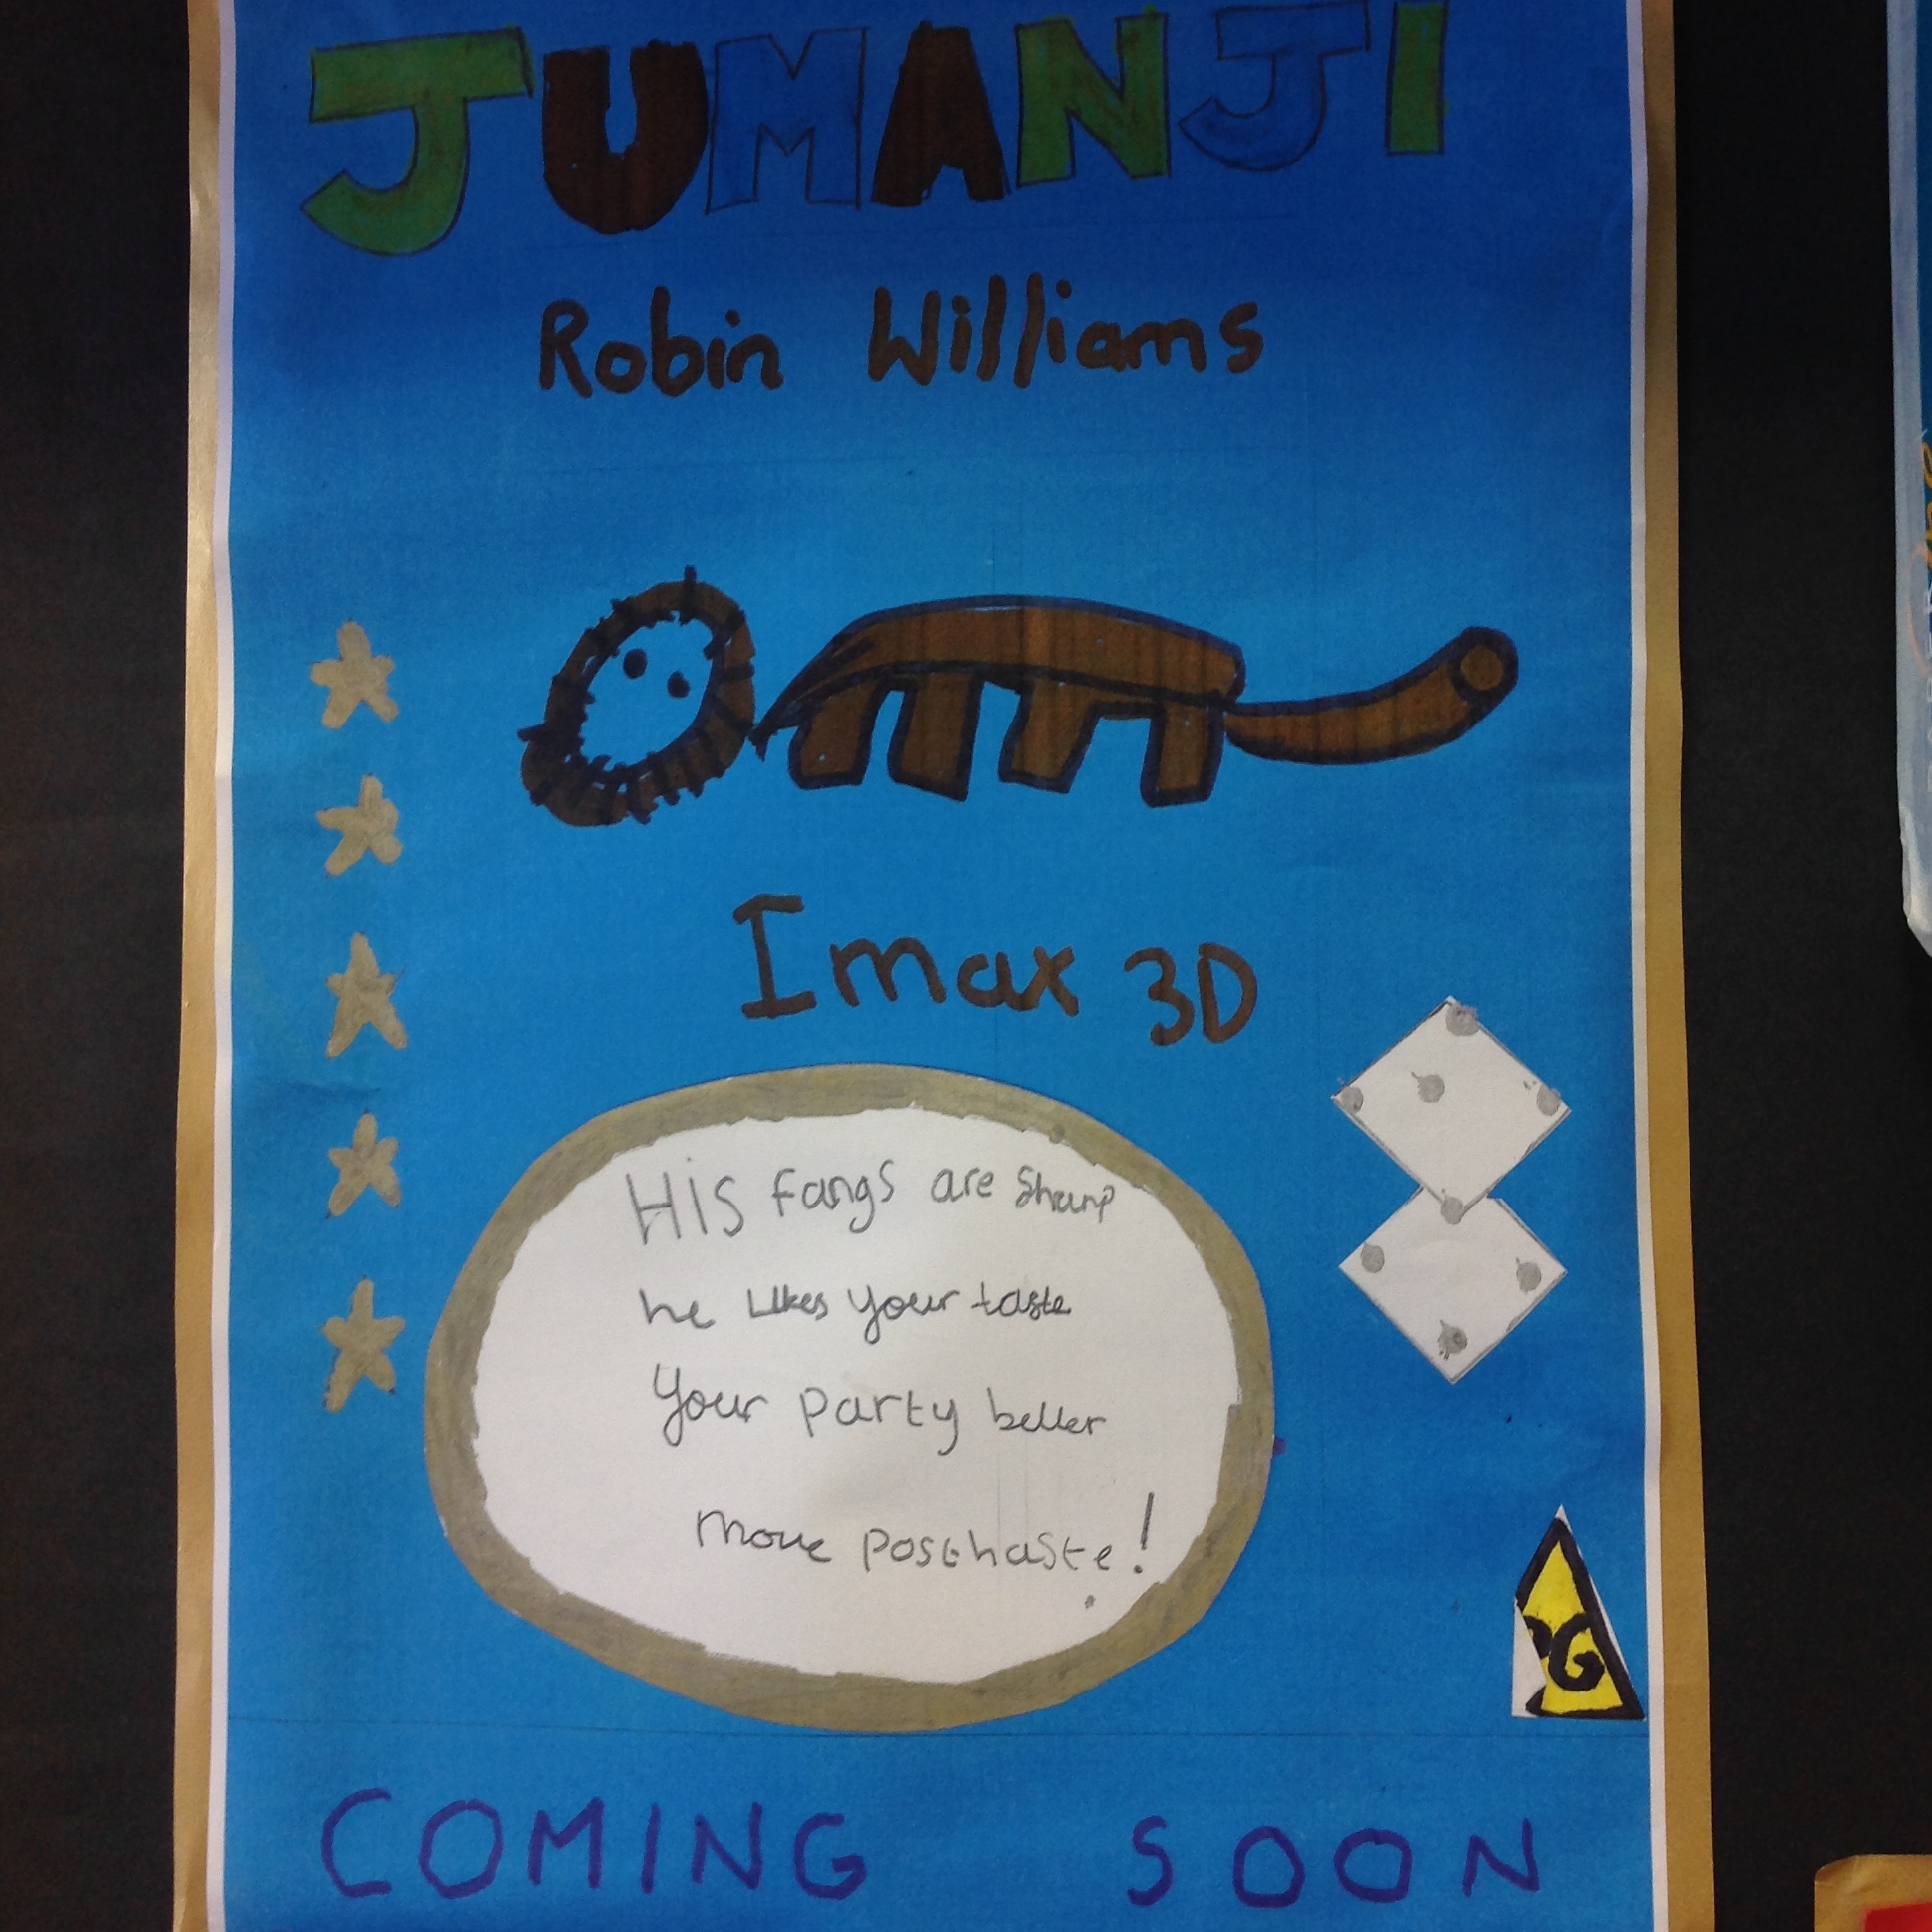 JUMANJI
Robin Williams
Imax 3D
His fangs are sharp
he likes your taste
your party beller
move posthaste!
PG
COMING SOON